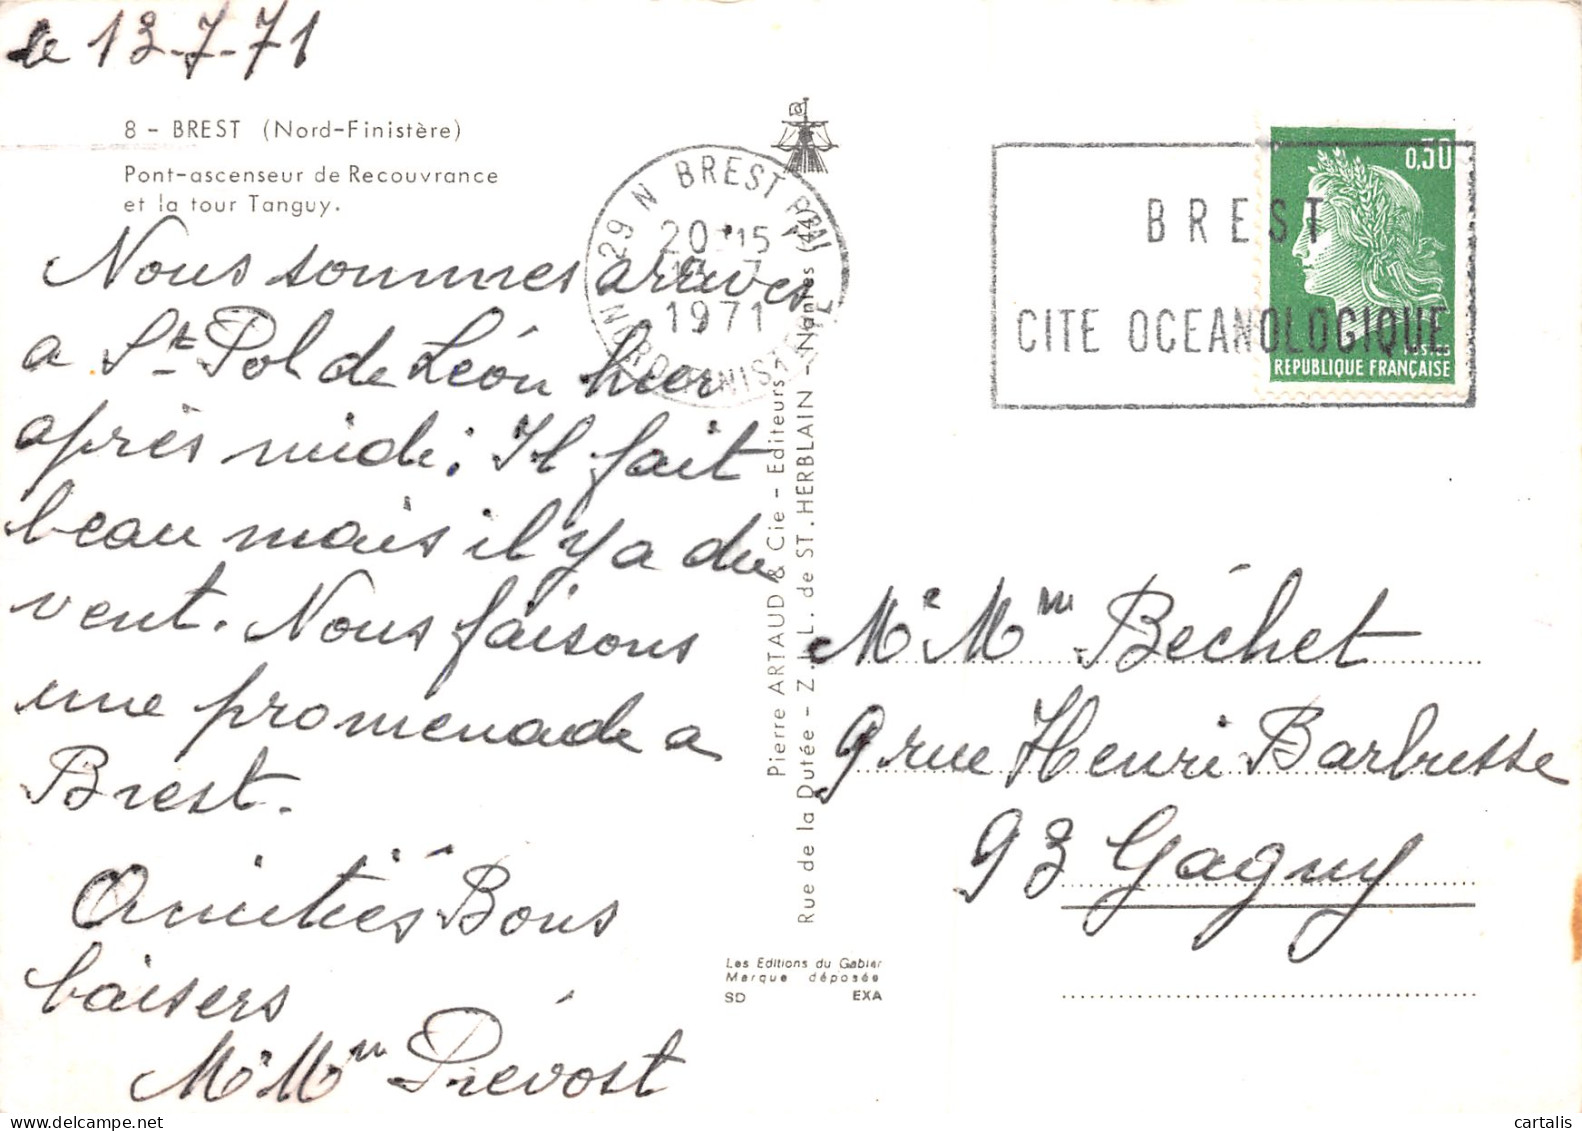 le 13-7-71
8 - BREST (Nord-Finistère)
Pont-ascenseur de Recouvrance
et la tour Tanguy.
Nous sommes arrivés
a St Pol de Léon hier
après midi; Il fait
beau mais il y a du
vent. Nous faisons
une promenade a
Brest.
Amitiés Bons
baisers
Mr Mme Prévost
29 N BREST RP
20 15
1971
NORD FINISTERE
Pierre ARTAUD & Cie - Editeurs
Rue de la Dutée - Z.I.L. de ST. HERBLAIN - Nantes (44)
Les Editions du Gabier
Marque déposée
SD EXA
BREST
CITE OCEANOLOGIQUE
0,30
POSTES
REPUBLIQUE FRANÇAISE
Mr Mme Béchet
9 rue Henri Barbusse
93 Gagny
delcampe.net
cartalis